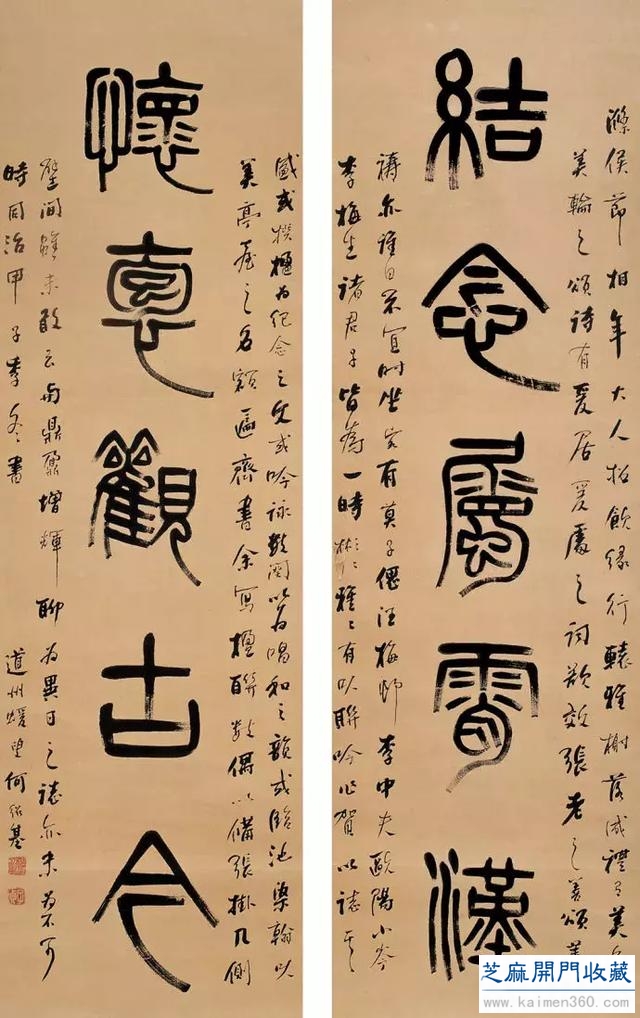 滌侯節相年大人招飲緣行轅雅榭落成禮有美
美輪之頌詩有爰居爰處之詞欲效張老之善頌善
結念屬霄漢
禱亦謹日不宜時坐客有莫子偲汪梅邨李中夫歐陽小岑
李梅生諸君子皆為一時彬彬雅雅有以聯吟作賀以誌其
盛或撰楹為紀念之文或吟詠歌闋以為唱和之韻或臨池染翰以
美亭臺之名額遍齋書余寫楹聯數偶以備張掛几側
懷袌觀古今
壁間雖未敢云與鼎彝增輝聊為異日之誌亦未為不可
時同治甲子季冬書
道州蝯叟何紹基
芝麻開門收藏
www.kaimen360.com